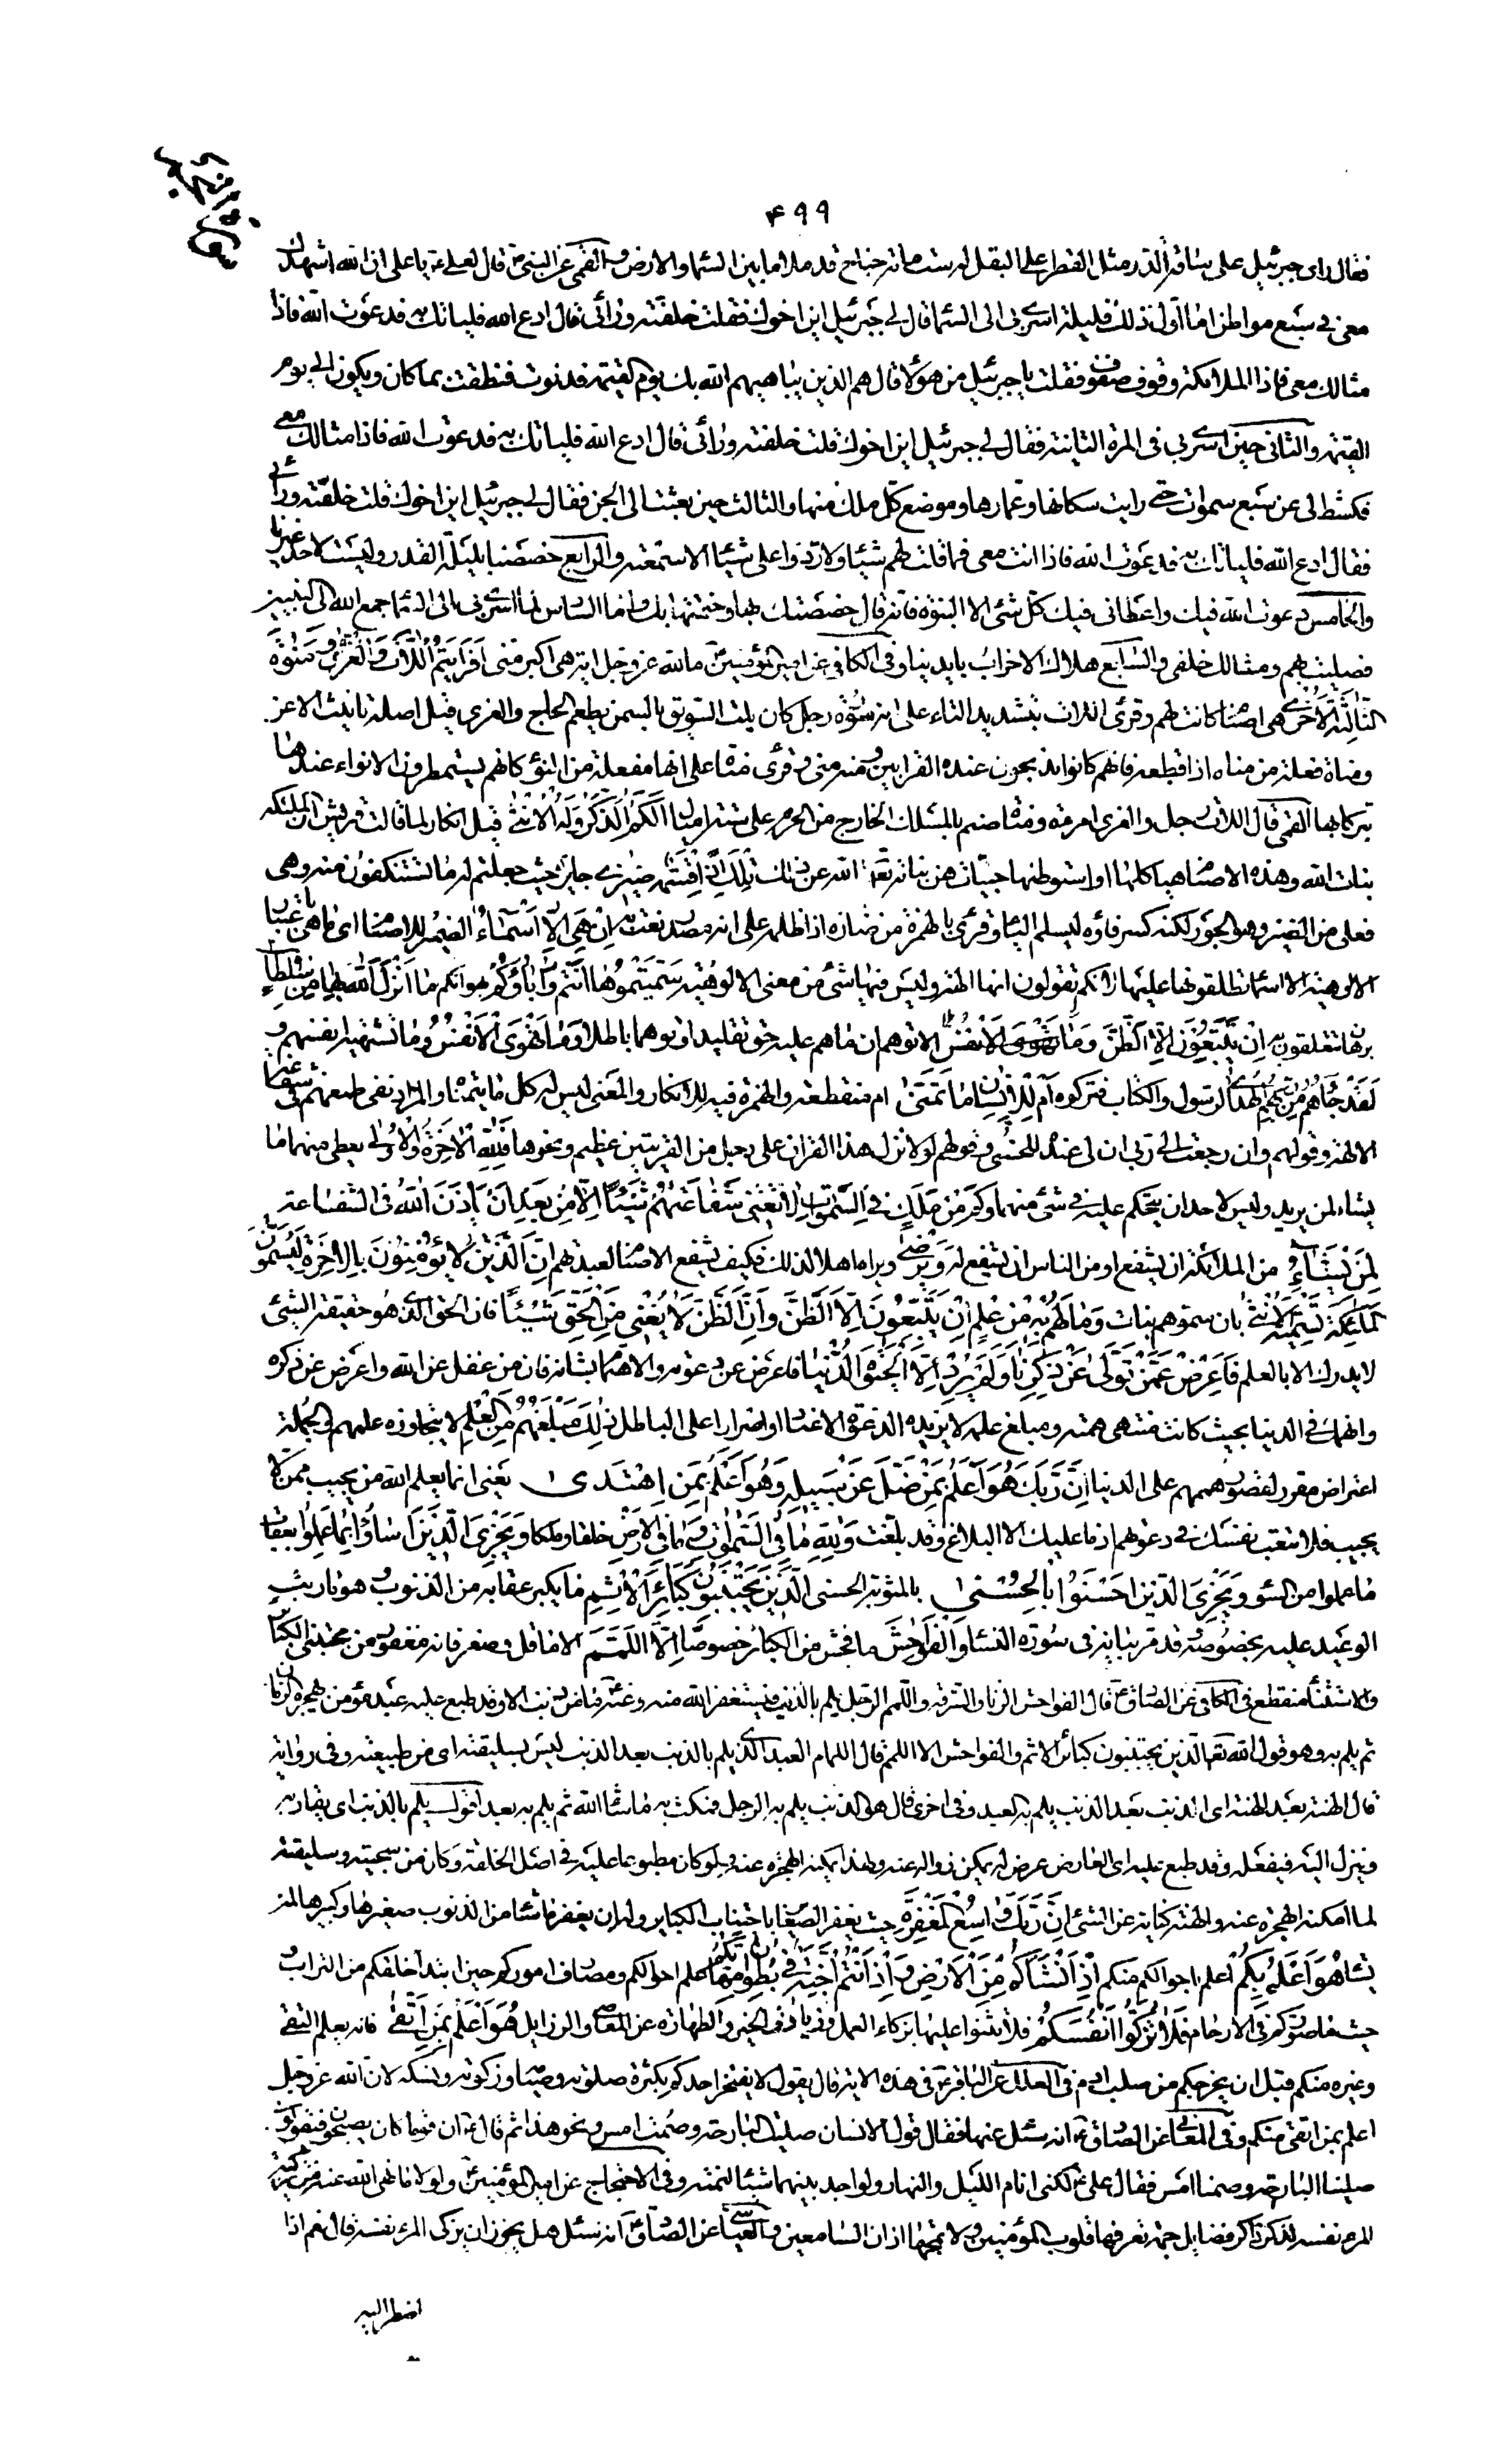 سورة النجم
۴۹۹
فقال رای جبرئیل علی ساقه الدر مثل القطر علی البقل له ست مائة جناح قد ملا ما بین السماء والارض والقمی عن النبی ص قال لعلی ع یا علی ان الله اشهدك
معی فی سبع مواطن اما اول ذلك فلیلة اسری بی الی السماء قال لی جبرئیل این اخوك فقلت خلفته ورائی قال ادع الله فلیاتك به فدعوت الله فاذا
مثالك معی فاذا الملائکة وقوف صفوف فقلت یا جبرئیل من هؤلاء قال هم الذین یباهیهم الله بك یوم القیمة فدنوت فنطقت بما کان ویکون الی یوم
القیمة والثانی حین اسری بی فی المرة الثانیة فقال لی جبرئیل این اخوك قلت خلفته ورائی قال ادع الله فلیاتك به فدعوت الله فاذا مثالك معی
فکشط لی عن سبع سموات حتی رایت سکانها وعمارها وموضع کل ملك منها والثالث حین بعثت الی الجن فقال لی جبرئیل این اخوك قلت خلفته ورائی
فقال ادع الله فلیاتك به فدعوت الله فاذا انت معی فما قلت لهم شیئا ولا ردوا علی شیئا الا سمعته والرابع خصصنا بلیلة القدر ولیست لاحد غیرنا
والخامس دعوت الله فیك واعطانی فیك کل شئ الا النبوة فانه قال خصصتك بها وختمتها بك واما السادس لما اسری بی الی السماء جمع الله لی النبیین
فصلیت بهم ومثالك خلفی والسابع هلاك الاحزاب بایدینا وفی الکافی عن امیر المؤمنین ع ما لله عز وجل ایة هی اکبر منی اَفَرَاَیْتُمُ اللّاتَ وَالْعُزّی وَمَنٰوةَ
الثّالِثَةَ الْاُخْری هی اصنام کانت لهم وقرئ اللات بتشدید التاء علی انه سمّوه رجل کان یلت السویق بالسمن ویطعم الحاج والعزی قیل اصله تانیث الاعز
ومناة فعلة من مناه اذا قطعه فانهم کانوا یذبحون عنده القرابین ومنه منی وقرئ مناة علی انها مفعلة من النوء کانهم یستمطرون الانواء عندها
تبرکا بها القمی قال اللات رجل والعزی امرءة ومناة صنم بالمسلك الخارج من الحرم علی ستة امیال اَلَکُمُ الذَّکَرُ وَلَهُ الْاُنْثی قیل انکار لما قالت قریش ان الملئکة
بنات الله وهذه الاصنام هیاکلها او استوطنها جنیات هن بناته تعالی الله عن ذلك تِلْكَ اِذًا قِسْمَةٌ ضیزی جایرة حیث جعلتم له ما تستنکفون منه وهی
فعلی من الضیز وهو الجور لکنه کسر فاؤه لیسلم الیاء وقرئ بالهمزة من ضازه اذا ظلمه علی انه مصدر نعت به اِنْ هِیَ اِلّا اَسْمآءٌ الضمیر للاصنام ای ما هی باعتبار
الالوهیة الا اسماء تطلقونها علیها لانکم تقولون انها الهة ولیس فیها شئ من معنی الالوهیة سَمَّیْتُمُوها اَنْتُمْ وَابآؤُکُمْ بهواکم ما اَنْزَلَ اللهُ بِها مِنْ سُلْطانٍ
برهان تتعلقون به اِنْ یَتَّبِعُونَ اِلَّا الظَّنَّ وَما تَهْوَی الْاَنْفُسُ الا توهم ان ما هم علیه حق تقلیدا وتوهما باطلا وَما تَهْوَی الْاَنْفُسُ وما تشتهیه انفسهم و
لَقَدْ جآءَهُمْ مِنْ رَبِّهِمُ الْهُدی الرسول والکتاب فترکوه اَمْ لِلْاِنْسانِ ما تَمَنّی ام منقطعة والهمزة فیه للانکار والمعنی لیس له کل ما یتمناه والمراد نفی طمعهم فی شفاعة
الالهة وقولهم ولئن رجعت الی ربی ان لی عنده للحسنی وقولهم لولا نزل هذا القران علی رجل من القریتین عظیم ونحوها فَلِلّهِ الْاخِرَةُ وَالْاُولی یعطی منهما ما
یشاء لمن یرید ولیس لاحد ان یتحکم علیه فی شئ منهما وَکَمْ مِنْ مَلَكٍ فِی السَّمواتِ لا تُغْنی شَفاعَتُهُمْ شَیْئًا اِلّا مِنْ بَعْدِ اَنْ یَأْذَنَ اللهُ فی الشفاعة
لِمَنْ یَشآءُ من الملائکة ان یشفع او من الناس ان یشفع له وَیَرْضی ویراه اهلا لذلك فکیف یشفع الاصنام لعبدتهم اِنَّ الَّذینَ لا یُؤْمِنُونَ بِالْاخِرَةِ لَیُسَمُّونَ
الْمَلئِکَةَ تَسْمِیَةَ الْاُنْثی بان سموهم بنات وَما لَهُمْ بِه مِنْ عِلْمٍ اِنْ یَتَّبِعُونَ اِلَّا الظَّنَّ وَاِنَّ الظَّنَّ لا یُغْنی مِنَ الْحَقِّ شَیْئًا فان الحق الذی هو حقیقة الشئ
لا یدرك الا بالعلم فَاَعْرِضْ عَمَّنْ تَوَلّی عَنْ ذِکْرِنا وَلَمْ یُرِدْ اِلَّا الْحَیٰوةَ الدُّنْیا فاعرض عن دعوته والاهتمام بشانه فان من غفل عن الله واعرض عن ذکره
وانهمك فی الدنیا بحیث کانت منتهی همته ومبلغ علمه لا یزیده الدعوة الا عنادا واصرارا علی الباطل ذلِكَ مَبْلَغُهُمْ مِنَ الْعِلْمِ لا یتجاوزه علمهم والجملة
اعتراض مقرر لقصور هممهم علی الدنیا اِنَّ رَبَّكَ هُوَ اَعْلَمُ بِمَنْ ضَلَّ عَنْ سَبیلِه وَهُوَ اَعْلَمُ بِمَنِ اهْتَدی یعنی انما یعلم الله من یجیب ممن لا
یجیب فلا تتعب نفسك فی دعوتهم اذ ما علیك الا البلاغ وقد بلغت وَلِلّهِ ما فِی السَّمواتِ وَما فِی الْاَرْضِ خلقا وملکا لِیَجْزِیَ الَّذینَ اَسآؤُا بِما عَمِلُوا بعقاب
ما عملوا من السوء وَیَجْزِیَ الَّذینَ اَحْسَنُوا بِالْحُسْنی بالمثوبة الحسنی اَلَّذینَ یَجْتَنِبُونَ کَبآئِرَ الْاِثْمِ ما یکبر عقابه من الذنوب وهو ما رتب
الوعید علیه بخصوصه وقد مر بیانه فی سورة النساء وَالْفَواحِشَ ما فحش من الکبائر خصوصا اِلَّا اللَّمَمَ الا ما قل وصغر فانه مغفور من مجتنبی الکبائر
والاستثناء منقطع فی الکافی عن الصادق ع قال الفواحش الزنا والسرقة واللمم الرجل یلم بالذنب فیستغفر الله منه وعنه ع ما من ذنب الا وقد طبع علیه عبد مؤمن یهجره الزمان
ثم یلم به وهو قول الله تعالی الذین یجتنبون کبائر الاثم والفواحش الا اللمم قال اللمام العبد الذی یلم بالذنب بعد الذنب لیس بسلیقته ای من طبیعته وفی روایة
قال الهنة بعد الهنة ای الذنب بعد الذنب یلم به العبد وفی اخری قال هو الذنب یلم به الرجل فیمکث ما شاء الله ثم یلم به بعد اقول یلم بالذنب ای یقاربه
وینزل الیه فیفعله وقد طبع علیه ای لعارض عرض له یمکن زواله عنه ولهذا یمکنه الهجرة عنه ولو کان مطبوعا علیه فی اصل الخلقة وکان من سجیته وسلیقته
لما امکنه الهجرة عنه والهنة کنایة عن الشئ اِنَّ رَبَّكَ واسِعُ الْمَغْفِرَةِ حیث یغفر الصغایر باجتناب الکبایر وله ان یغفر ما شاء من الذنوب صغیرها وکبیرها لمن
یشاء هُوَ اَعْلَمُ بِکُمْ اعلم باحوالکم منکم اِذْ اَنْشَاَکُمْ مِنَ الْاَرْضِ وَاِذْ اَنْتُمْ اَجِنَّةٌ فی بُطُونِ اُمَّهاتِکُمْ علم احوالکم ومصارف امورکم حین ابتدأ خلقکم من التراب و
حیث ما صورکم فی الارحام فَلا تُزَکُّوا اَنْفُسَکُمْ فلا تثنوا علیها بزکاء العمل وزیادة الخیر والطهارة عن المعاصی والرزایل هُوَ اَعْلَمُ بِمَنِ اتَّقی فانه یعلم التقی
وغیره منکم قبل ان یخرجکم من صلب ادم ع فی العلل عن الباقر ع فی هذه الایة قال یقول لا یفتخر احدکم بکثرة صلوته وصیامه وزکوته ونسکه لان الله عز وجل
اعلم بمن اتقی منکم وفی المعانی عن الصادق ع انه سئل عنها فقال قول الانسان صلیت البارحة وصمت امس ونحو هذا ثم قال ع ان قوما کان یصبحون فیقولون
صلینا البارحة وصمنا امس فقال علی ع لکنی انام اللیل والنهار ولو اجد بینهما شیئا لنمته وفی الاحتجاج عن امیر المؤمنین ع ولولا ما نهی الله عنه من تزکیة
المرء نفسه لذکر ذاکر فضایل جمة تعرفها قلوب المؤمنین ولا تمجها اذان السامعین والعیاشی عن الصادق ع انه سئل هل یجوز ان یزکی المرء نفسه قال نعم اذا
اضطر الیه